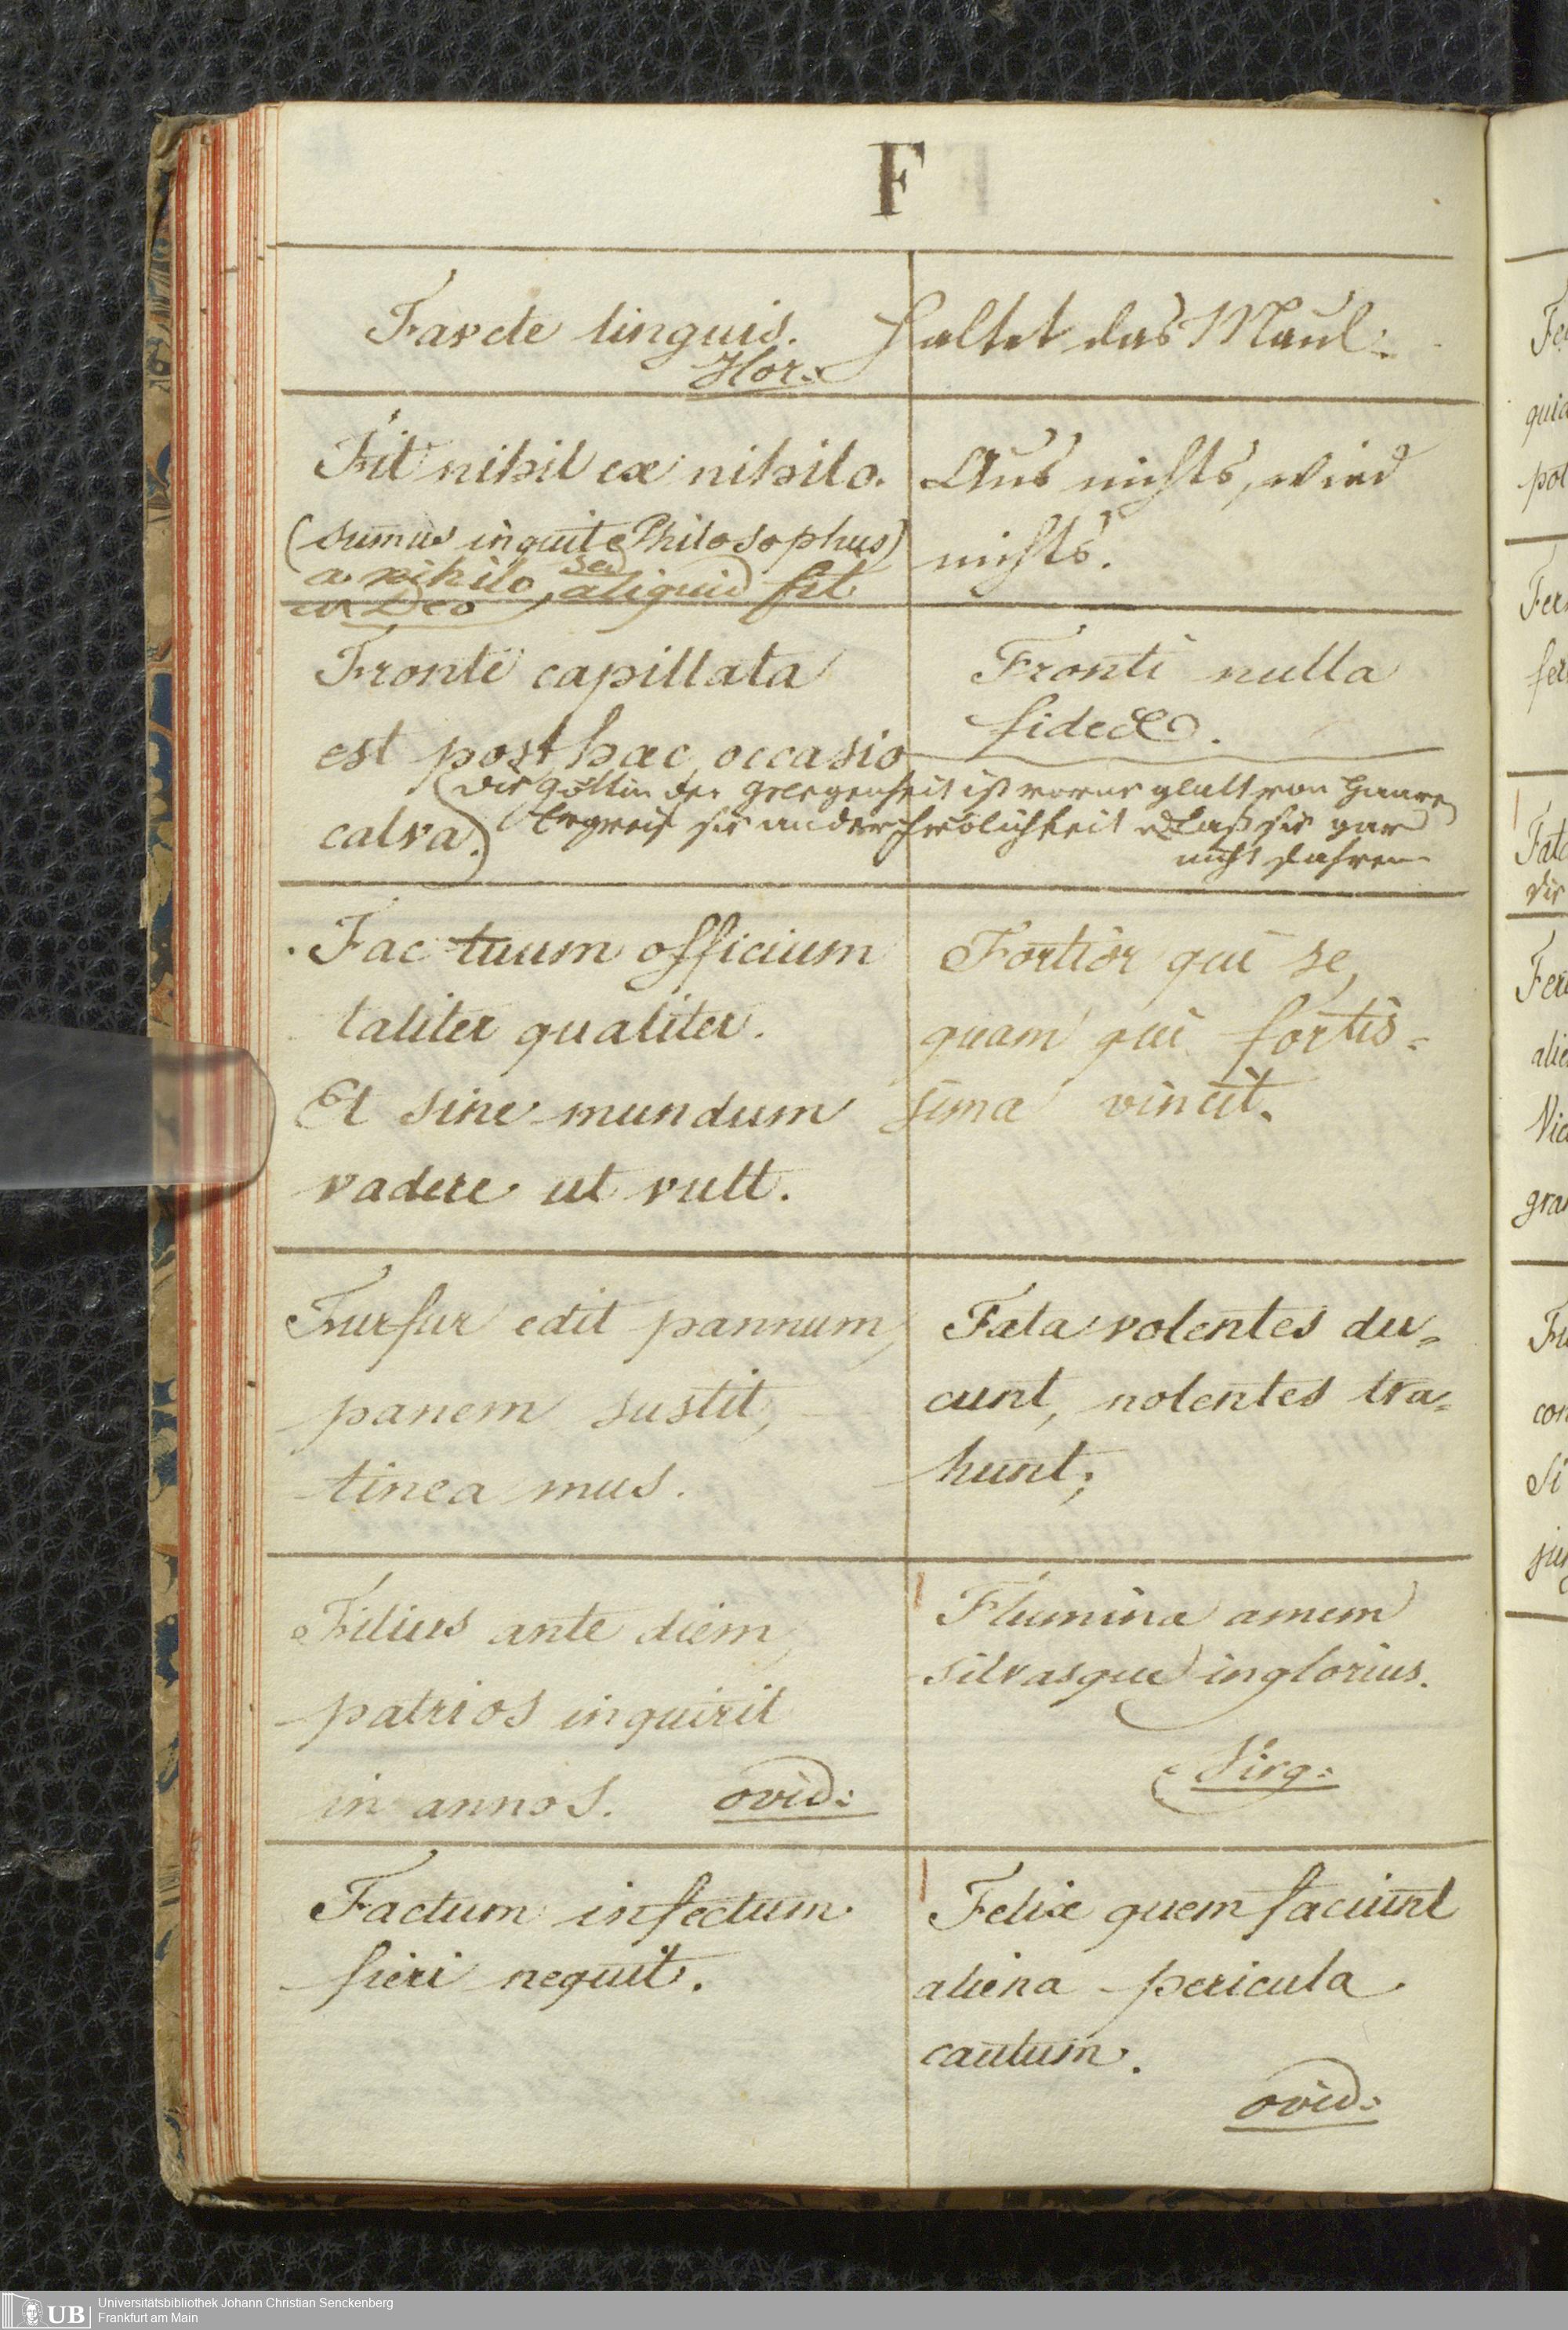 F
Favete linguis.
Hor:
Haltet das Maul:
Fit nihil ex nihilo.
(sumus inquit Philosophus)
a nihilo, sed aliquid fit
in Deo
Aus nichts, wird
nichts.
Fronti capillata
est post hac occasio
calva.
Fronti nulla
fides.
(die Göttin der Gelegenheit ist vorne glatt von Haare
Ergreif sie laß sie gar
nicht fahren
Fac tuum officium
taliter qualiter.
Et sine mundum
vadere ut vult.
Fortior qui se,
quam qui fortis=
sima vincit.
Furfur edit pannum,
panem sustit,
tinea mus.
Fata volentes du=
cunt, nolentes tra=
hunt;
Filius ante diem
patrios inquirit
in annos. ovid:
Flumina amem
silvasque inglorius.
Virg:
Factum infectum
fieri nequit.
Felix quem faciunt
aliena pericula
cautum.
ovid:
Fe
quia
pot
Fer
fer
Fata
die
Fer
alie
Vic
gra
Fu
con
Si
jun
UB Universitätsbibliothek Johann Christian Senckenberg
Frankfurt am Main